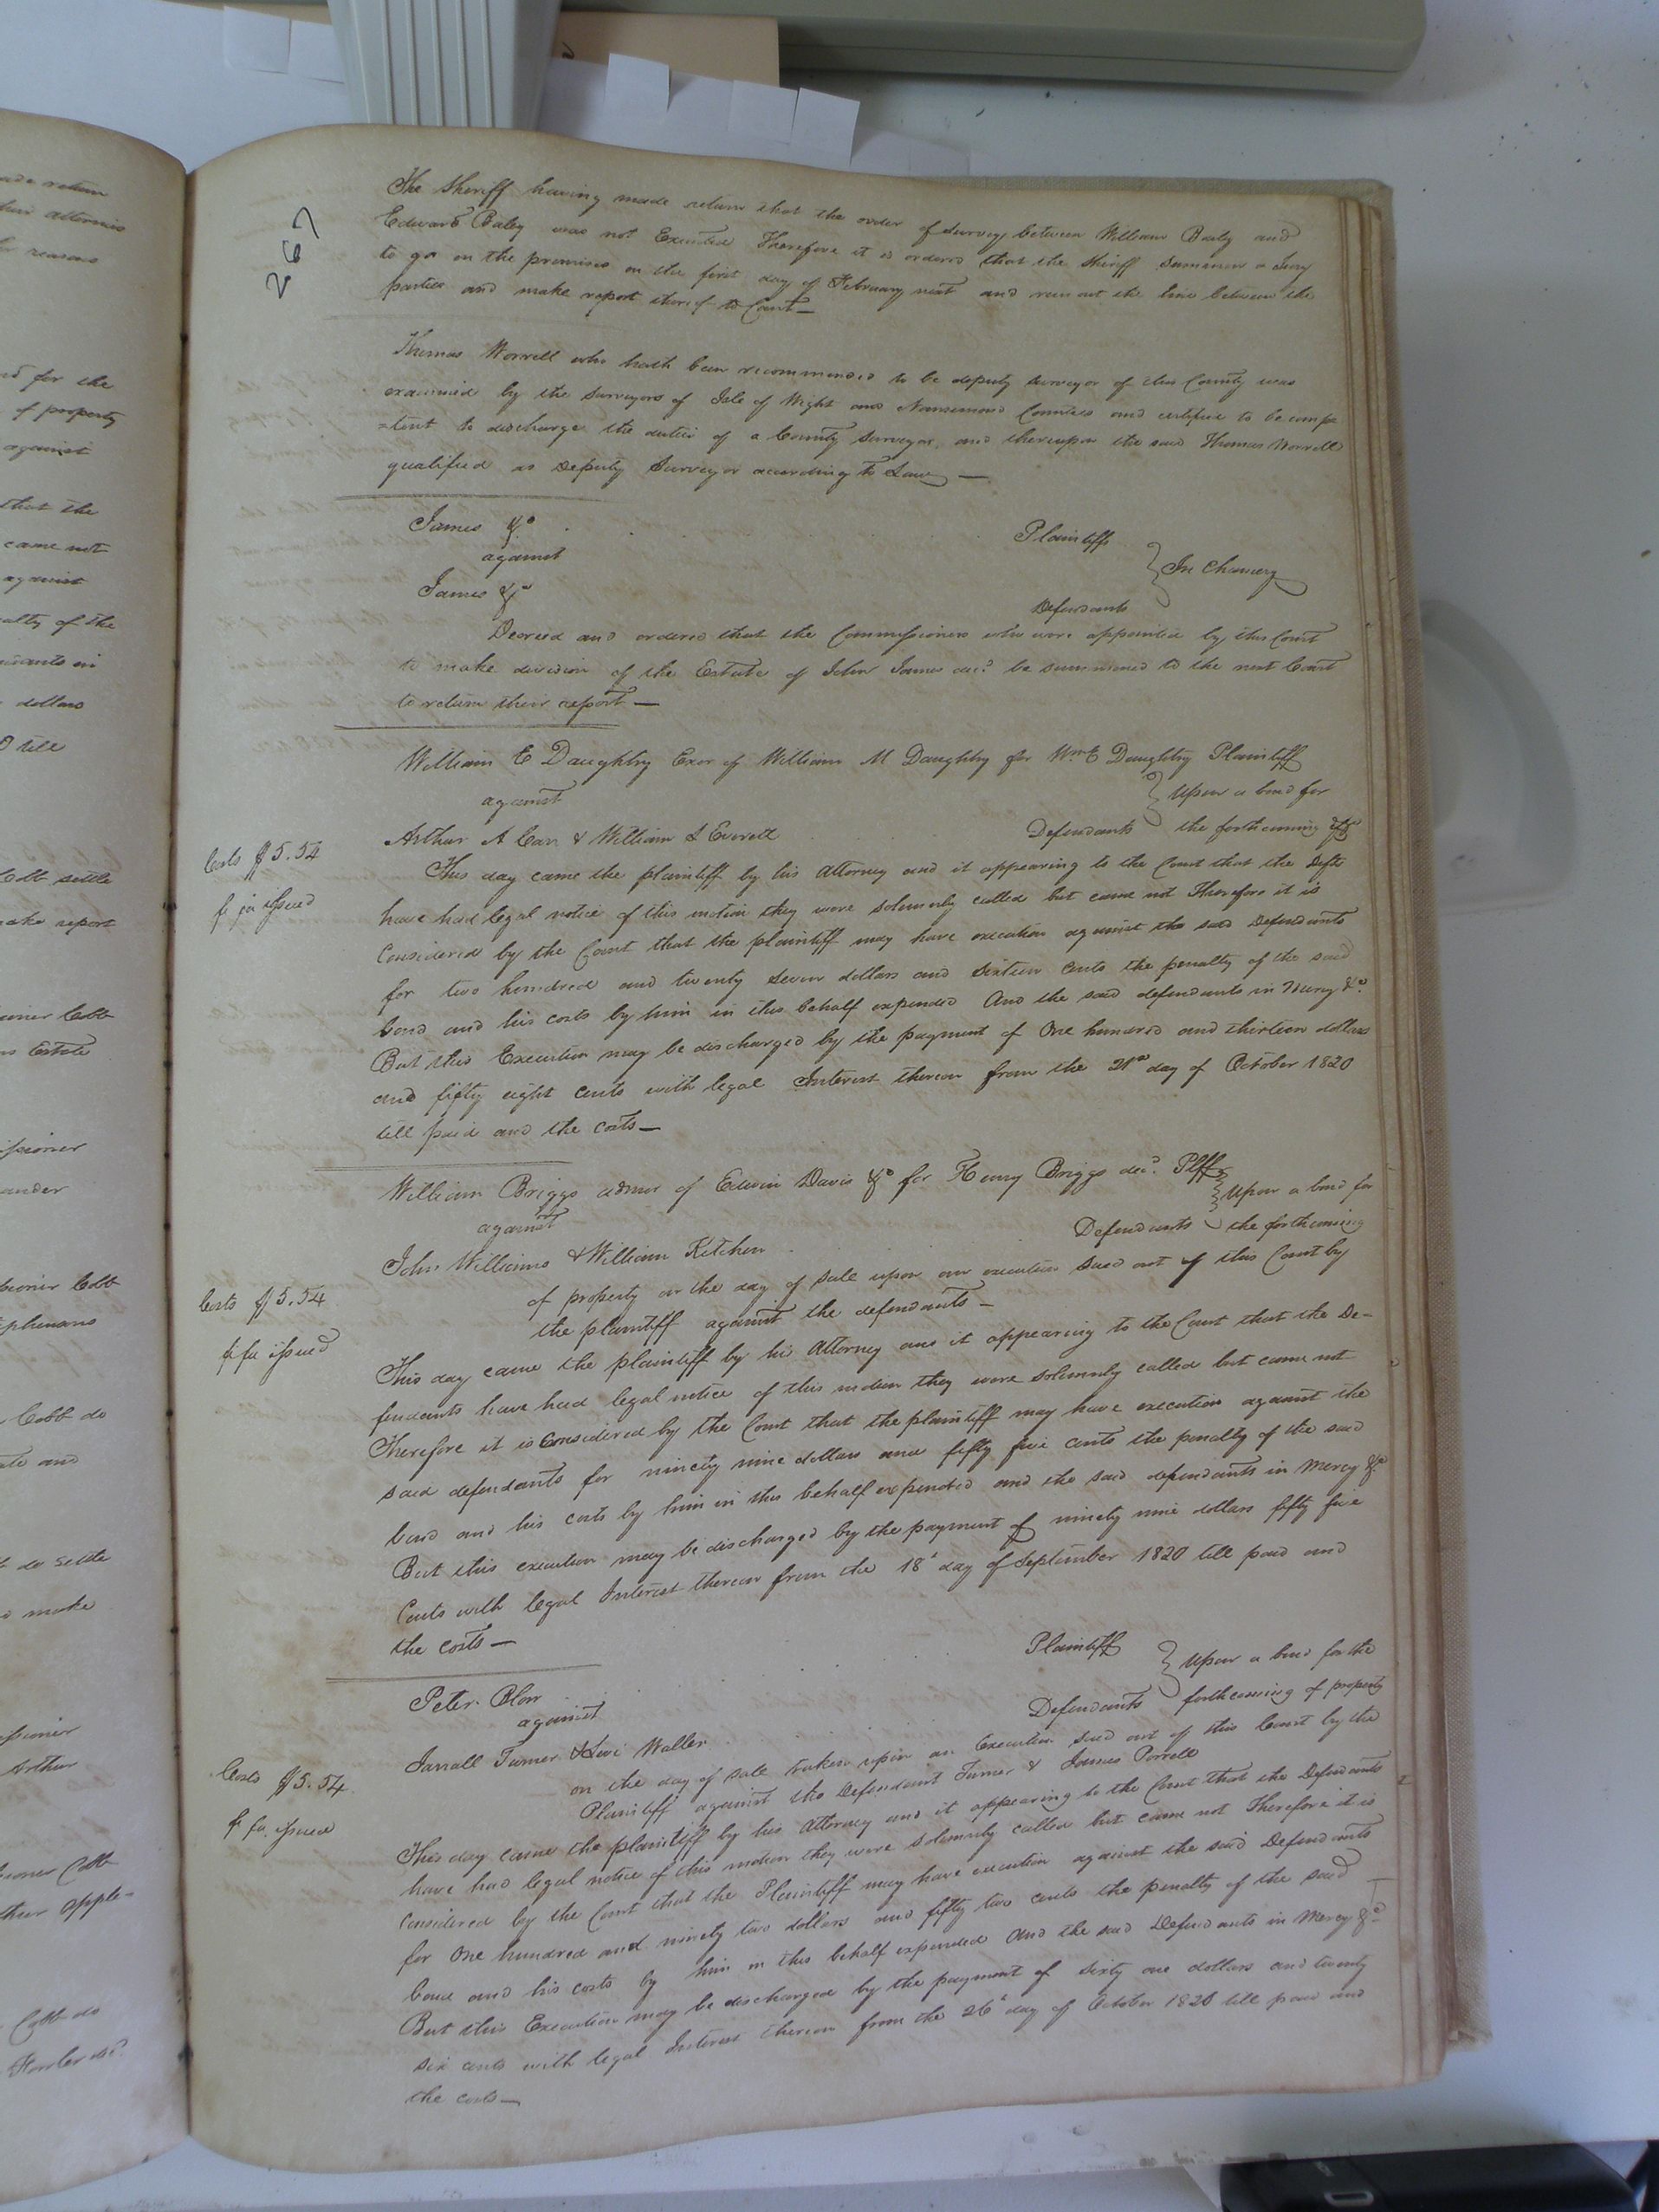 267
The Sheriff having made return that the order of Survey between William Baily and
Edward Baley was not Executed Therefore it is ordered that the Sheriff Summon a Jury
to go on the premises on the first day of February next and run out the line between the
parties and make report thereof to Court—
Thomas Worrell who hath been recommended to be deputy surveyor of this County was
examined by the surveyors of Isle of Wight and Nansemond Counties and certified to be compe
=tent to discharge the duties of a County Surveyor, and thereupon the said Thomas Worrell
qualified as Deputy Surveyor according to Law—
James &c Plaintiffs
against } In Chancery
James &c Defendants
Decreed and ordered that the Commissioners who were appointed by this Court
to make division of the Estate of John James decd be summoned to the next Court
to return their report—
William E Daughtry Exor of William M Daughtry for Wm E Daughtry Plaintiff
against } Upon a bond for
Arthur A Carr & William S Everett Defendants the forthcoming &c
Costs $5.54
This day came the plaintiff by his Attorney and it appearing to the Court that the Defts
fi fa issued
have had legal notice of this motion they were solemnly called but came not Therefore it is
Considered by the Court that the plaintiff may have execution against the said Defendants
for two hundred and twenty seven dollars and sixteen cents the penalty of the said
bond and his costs by him in this behalf expended And the said defendants in Mercy &c.
But this Execution may be discharged by the payment of One hundred and thirteen dollars
and fifty eight cents with legal Interest thereon from the 21st day of October 1820
till paid and the costs—
William Briggs admor of Edwin Davis &c for Henry Briggs decd. Plff
against } Upon a bond for
John Williams & William Kitchen Defendants the forthcoming
Costs $5.54
of property on the day of sale upon an execution sued out of this Court by
the plaintiff against the defendants—
fi fa issued
This day came the plaintiff by his Attorney and it appearing to the Court that the De-
fendants have had legal notice of this motion they were solemnly called but came not
Therefore it is Considered by the Court that the plaintiff may have execution against the
said defendants for ninety nine dollars and fifty five cents the penalty of the said
bond and his costs by him in this behalf expended and the said defendants in Mercy &c.
But this execution may be discharged by the payment of ninety nine dollars fifty five
Cents with legal Interest thereon from the 18th day of September 1820 till paid and
the costs—
Peter Blow Plaintiff
against } Upon a bond for the
Jarrall Turner & Levi Waller Defendants forthcoming of property
Costs $5.54
on the day of sale taken upon an Execution sued out of this Court by the
Plaintiff against the Defendant Turner & James Porrell
fi fa. issued
This day came the plaintiff by his Attorney and it appearing to the Court that the Defendants
have had legal notice of this motion they were solemnly called but came not Therefore it is
Considered by the Court that the Plaintiff may have execution against the said Defendants
for One hundred and ninety two dollars and fifty two cents the penalty of the said
bond and his costs by him in this behalf expended And the said Defendants in Mercy &c
But this Execution may be discharged by the payment of sixty one dollars and twenty
six cents with legal Interest thereon from the 26th day of October 1820 till paid and
the costs—